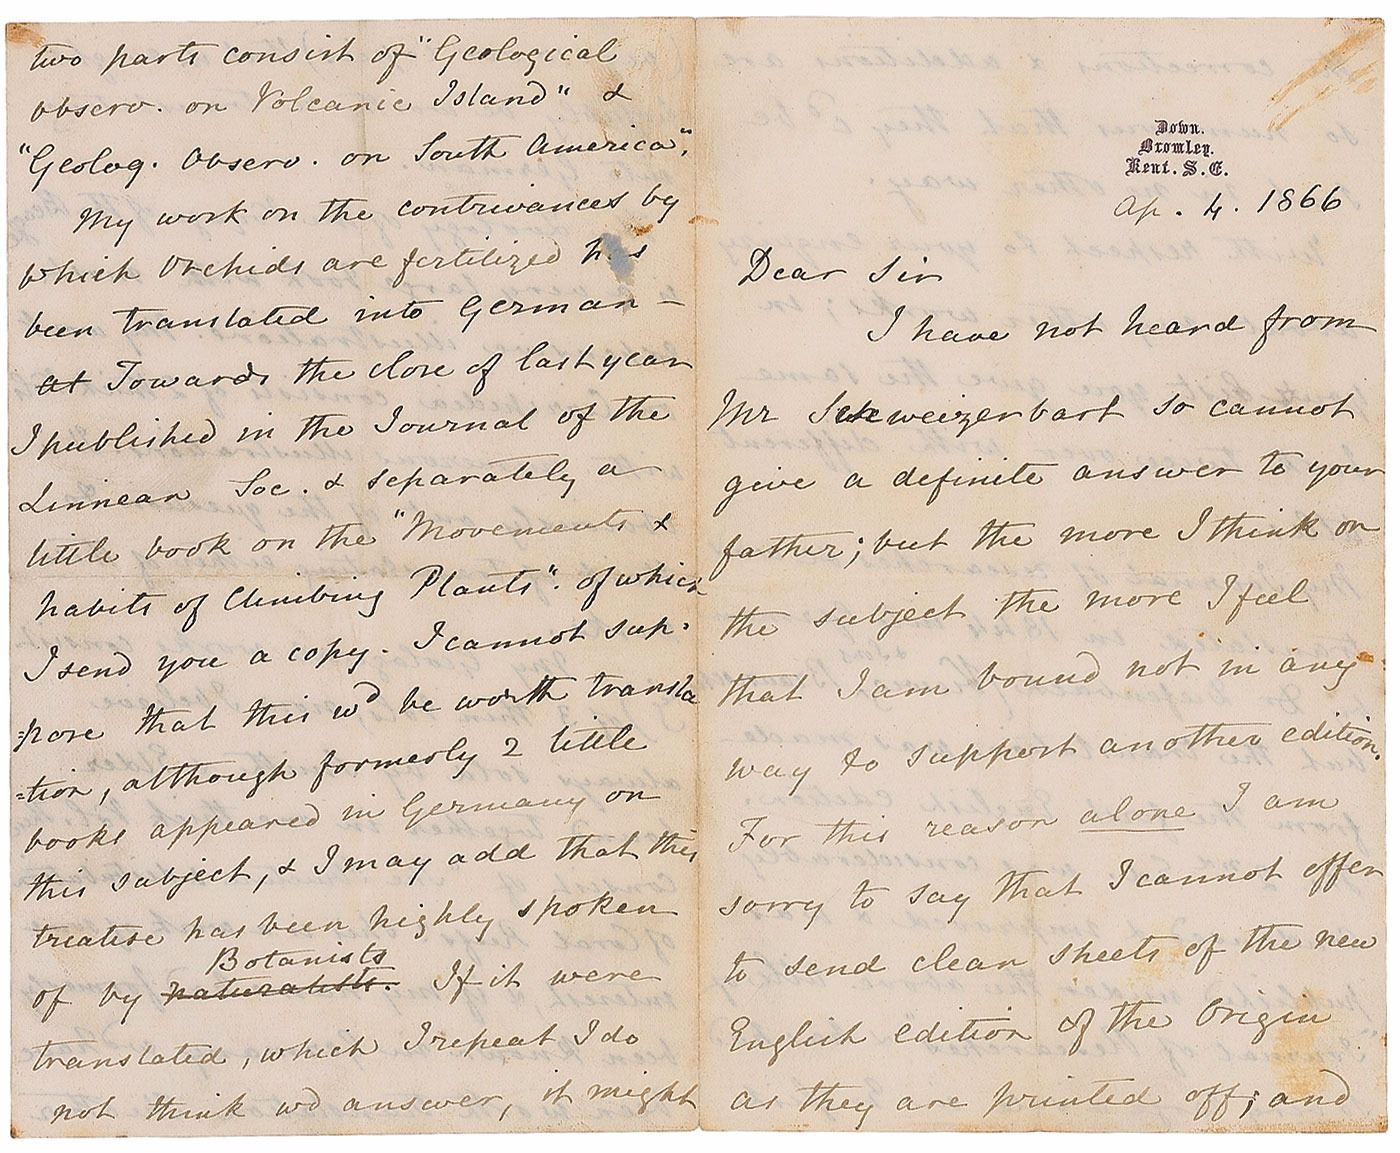 Down.
Bromley.
Kent. S.E.
Ap. 4. 1866
Dear Sir
I have not heard from
Mr Schweizerbart so cannot
give a definite answer to your
father; but the more I think on
the subject the more I feel
that I am bound not in any
way to support another edition.
For this reason alone I am
sorry to say that I cannot offer
to send clean sheets of the new
English edition of the Origin
as they are printed off; and
two parts consist of "Geological
observ. on Volcanic Island" &
"Geolog. Observ. on South America".
My work on the contrivances by
which Orchids are fertilized has
been translated into German —
at Towards the close of last year
I published in the Journal of the
Linnean Soc. & separately a
little book on the "Movements &
habits of Climbing Plants". of which
I send you a copy. I cannot sup-
=pose that this wd be worth transla
=tion, although formerly 2 little
books appeared in Germany on
this subject, & I may add that this
treatise has been highly spoken
Botanists
of by naturalists. If it were
translated, which I repeat I do
not think wd answer, it might